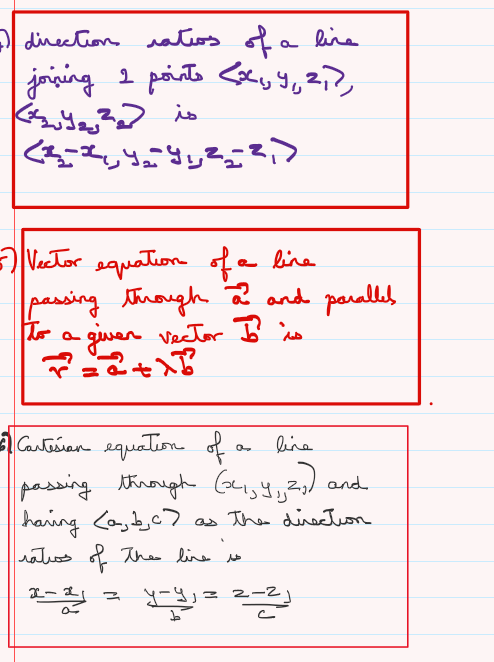 ) direction ratios of a line
joining 2 points <x₁, y₁, z₁>,
<x₂, y₂, z₂> is
<x₂-x₁, y₂-y₁, z₂-z₁>
5) Vector equation of a line
passing through a⃗ and parallel
to a given vector b⃗ is
r⃗ = a⃗ + λb⃗
6) Cartesian equation of a line
passing through (x₁, y₁, z₁) and
having <a, b, c> as the direction
ratios of the line is
(x-x₁)/a = (y-y₁)/b = (z-z₁)/c